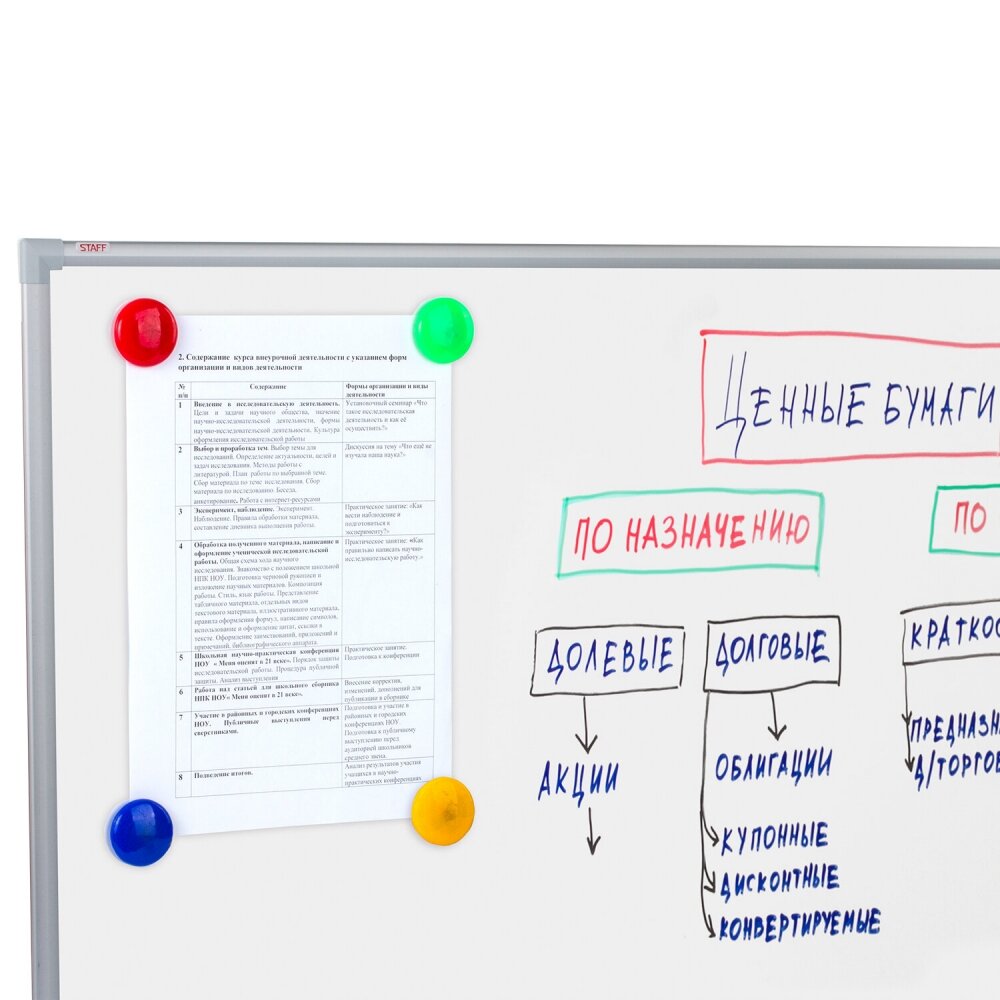 STAFF
2. Содержание курса внеурочной деятельности с указанием форм
организации и видов деятельности
№
п/п
Содержание
Формы организации и виды
деятельности
1
Введение в исследовательскую деятельность.
Цели и задачи научного общества, значение
научно-исследовательской деятельности, формы
научно-исследовательской деятельности. Культура
оформления исследовательской работы
Установочный семинар «Что
такое исследовательская
деятельность и как её
осуществить?»
2
Выбор и проработка тем. Выбор темы для
исследований. Определение актуальности, целей и
задач исследования. Методы работы с
литературой. План работы по выбранной теме.
Сбор материала по теме исследования. Сбор
материала по исследованию: Беседа,
анкетирование. Работа с интернет-ресурсами
Дискуссия на тему «Что ещё не
изучала наша наука?».
3
Эксперимент, наблюдение. Эксперимент.
Наблюдение. Правила обработки материала,
составление дневника выполнения работы.
Практическое занятие: «Как
вести наблюдение и
подготовиться к
эксперименту?»
4
Обработка полученного материала, написание и
оформление ученической исследовательской
работы. Общая схема хода научного
исследования. Знакомство с положением школьной
НПК НОУ. Подготовка черновой рукописи и
изложение научных материалов. Композиция
работы. Стиль, язык работы. Представление
табличного материала, отдельных видов
текстового материала, иллюстративного материала,
правила оформления формул, написание символов,
использование и оформление цитат, ссылки в
тексте. Оформление заимствований, приложений и
примечаний, библиографического аппарата.
Практическое занятие: «Как
правильно написать научно-
исследовательскую работу.»
5
Школьная научно-практическая конференция
НОУ « Меня оценят в 21 веке». Порядок защиты
исследовательской работы. Процедура публичной
защиты. Анализ выступления
Практическое занятие:
Подготовка к конференции
6
Работа над статьей для школьного сборника
НПК НОУ« Меня оценят в 21 веке».
Внесение корректив,
изменений, дополнений для
публикации в сборнике
7
Участие в районных и городских конференциях
НОУ. Публичные выступления перед
сверстниками.
Подготовка и участие в
районных и городских
конференциях НОУ.
Подготовка к публичному
выступлению перед
аудиторией школьников
среднего звена.
8
Подведение итогов.
Анализ результатов участия
учащихся в научно-
практических конференциях
ЦЕННЫЕ БУМАГИ
ПО НАЗНАЧЕНИЮ
ПО
ДОЛЕВЫЕ
ДОЛГОВЫЕ
КРАТКОС
АКЦИИ
ОБЛИГАЦИИ
ПРЕДНАЗН
Д/ТОРГОВ
КУПОННЫЕ
ДИСКОНТНЫЕ
КОНВЕРТИРУЕМЫЕ